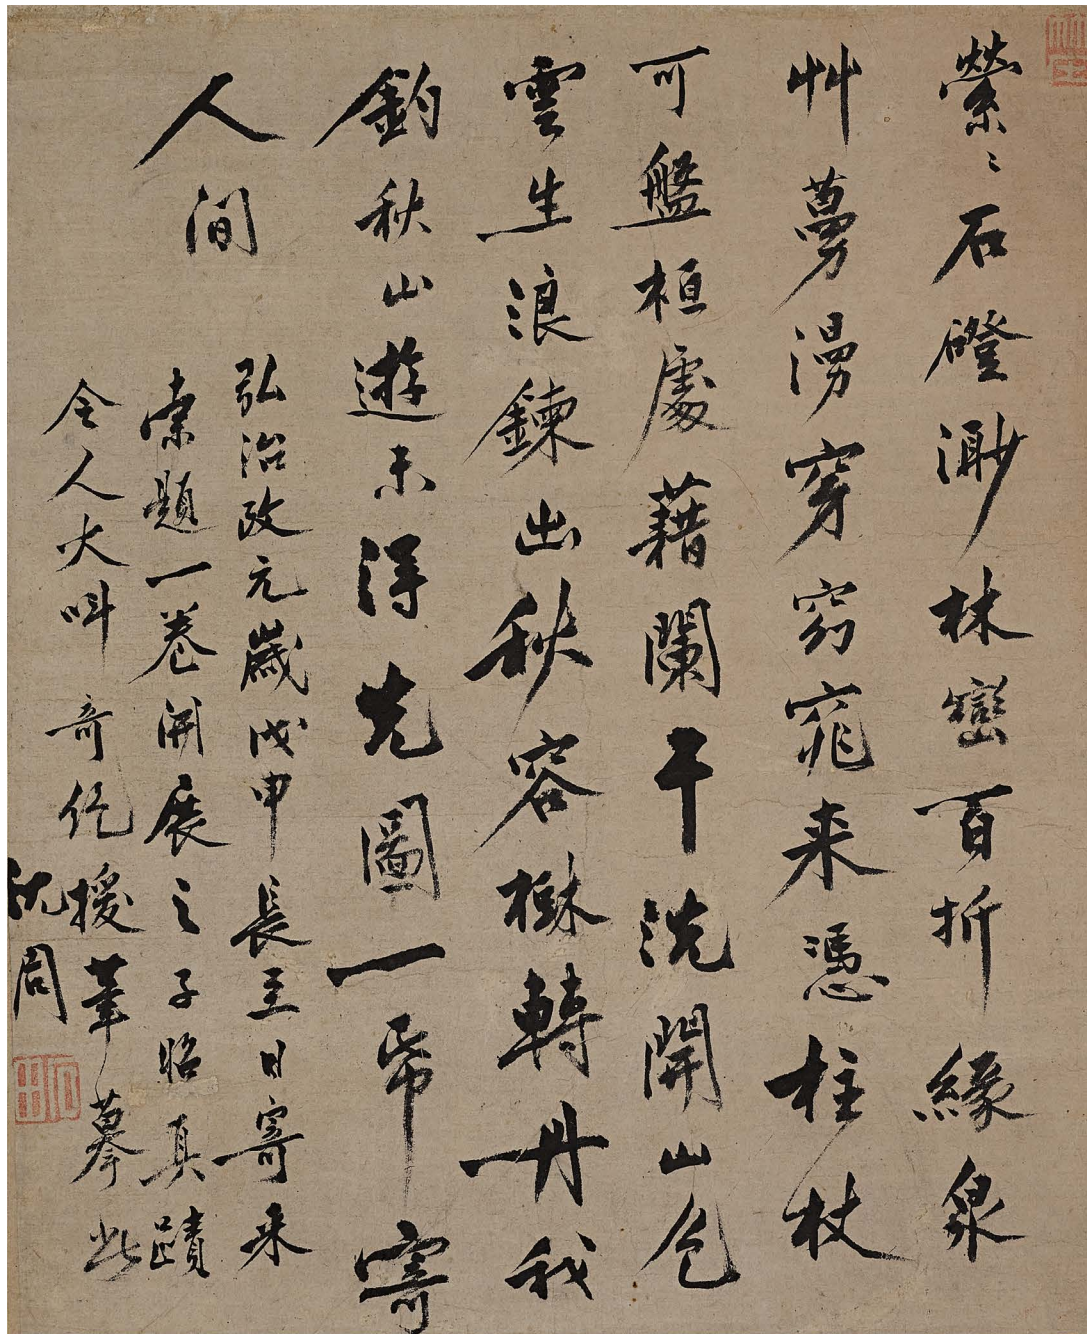 縈〻石磴渺林巒百折緣泉
艸蔓漫穿窈窕来憑柱杖
可盤桓處藉闌干洗開山色
雲生浪鍊出秋容樹轉丹我
釣秋山遊未得先圖一帋寄
人間
弘治改元歲戊申長至日寄来
索題一卷開展之子昭真蹟
令人大叫奇絕援筆摹此
沈周